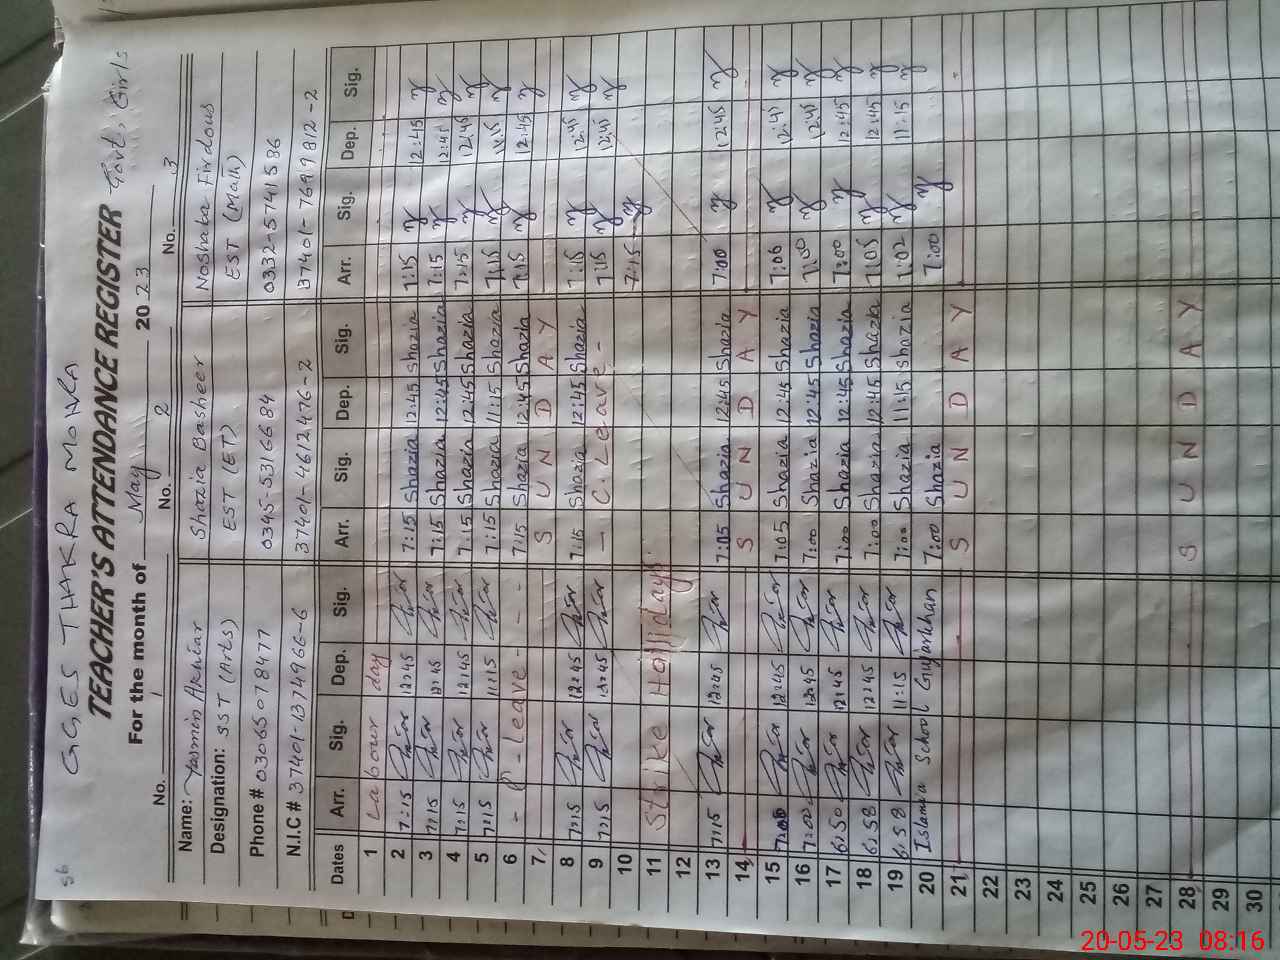 56
GGES THAKRA MOHRA
TEACHER'S ATTENDANCE REGISTER Govt. Girls
For the month of May 2023
No. 1 No. 2 No. 3
Name: Yasmin Akhtar Shazia Basheer Noshaba Firdous
Designation: SST (Arts) EST (ET) EST (Math)
Phone # 03065078477 0345-5316684 0332-5741586
N.I.C # 37401-1374966-6 37401-4612476-2 37401-7699812-2
Dates Arr. Sig. Dep. Sig. Arr. Sig. Dep. Sig. Arr. Sig. Dep. Sig.
1 Labour day
2 7:15 12:45 7:15 Shazia 12:45 Shazia 7:15 12:45
3 7:15 12:45 7:15 Shazia 12:45 Shazia 7:15 12:45
4 7:15 12:45 7:15 Shazia 12:45 Shazia 7:15 12:45
5 7:15 11:15 7:15 Shazia 11:15 Shazia 7:15 11:15
6 - P - Leave - - - 7:15 Shazia 12:45 Shazia 7:15 12:45
7 S U N D A Y
8 7:15 12:45 7:15 Shazia 12:45 Shazia 7:15 12:45
9 7:15 12:45 - C. Leave - 7:15 12:45
10 7:15
11 Strike Hollidays.
12
13 7:15 12:45 7:05 Shazia 12:45 Shazia 7:00 12:45
14 S U N D A Y
15 7:00 12:45 7:05 Shazia 12:45 Shazia 7:06 12:45
16 7:00 12:45 7:00 Shazia 12:45 Shazia 7:00 12:45
17 6:50 12:45 7:00 Shazia 12:45 Shazia 7:00 12:45
18 6:58 12:45 7:00 Shazia 12:45 Shazia 7:05 12:45
19 6:58 11:15 7:00 Shazia 11:15 Shazia 7:02 11:15
20 Islamia School Gujarkhan 7:00 Shazia 7:00
21 S U N D A Y
22
23
24
25
26
27
28 S U N D A Y
29
30
20-05-23 08:16